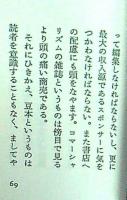 って編集しなければならないし、更に
最大の収入源であるスポンサーに気を
つかわなければならない。また書店へ
の配慮にも頭をなやます。コマーシャ
リズムの雑誌というものは傍目で見る
より頭の痛い商売である。
それにひきかえ、豆本というものは
読者を意識することもなく、ましてや
69